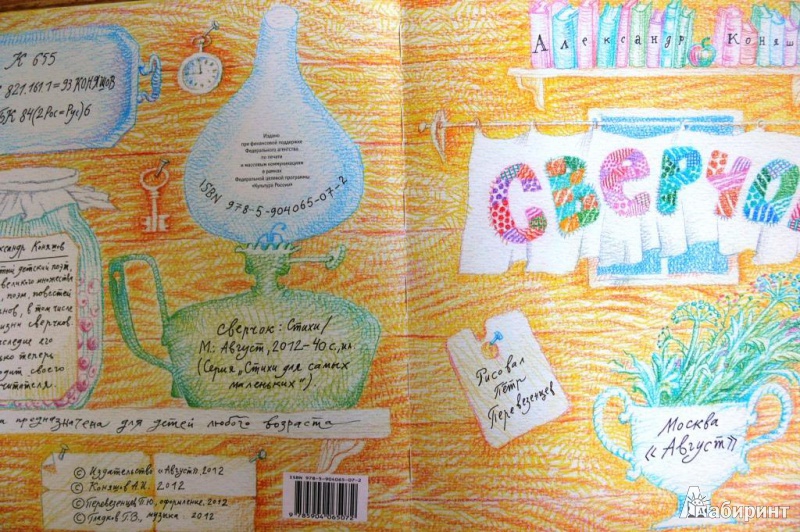 К 655
821.161.1=93 КОНЯШОВ
БК 84(2Рос-Рус)6
Издано
при финансовой поддержке
Федерального агентства
по печати
и массовым коммуникациям
в рамках
Федеральной целевой программы
«Культура России»
ISBN 978-5-904065-07-2
ксандр Коняшов
детский поэт,
великого множества
, поэм, повестей
нов, в том числе
изни сверчков
следие его
ько теперь
ходит своего
читателя.
Сверчок: Стихи/
М.: Август, 2012-40 с., ил
(Серия „Стихи для самых
маленьких").
а предназначена для детей любого возраста
© Издательство «Август». 2012
© Коняшов А.И. 2012
© Перевезенцев П.Ю., оформление. 2012
© Гладков Г.В., музыка. 2012
ISBN 978-5-904065-07-2
9 785904 065072
Александр Коняш
СВЕРЧО
Рисовал
Пётр
Перевезенцев
Москва
«Август»
Лабиринт